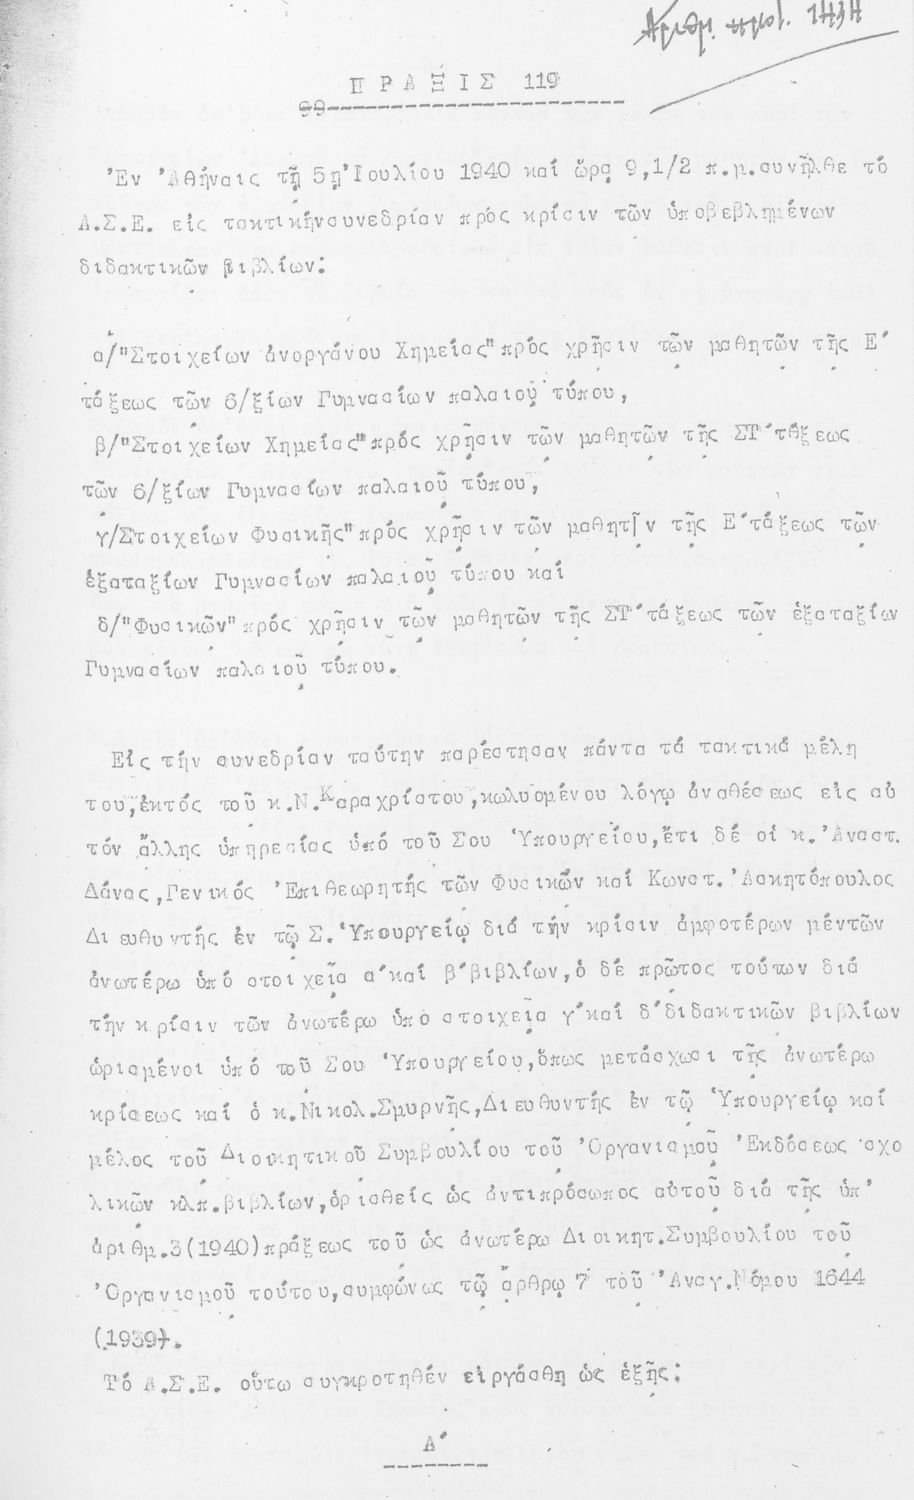 Αριθμ. πρωτ. 1434
Π Ρ Α Ξ Ι Σ 119
99-----------------------
Ἐν Ἀθήναις τῇ 5ῃ Ἰουλίου 1940 καί ὥρᾳ 9,1/2 π.μ.συνῆλθε τό
Α.Σ.Ε. εἰς τακτικήνσυνεδρίαν πρός κρίσιν τῶν ὑποβεβλημένων
διδακτικῶν βιβλίων:
α/"Στοιχείων ἀνοργάνου Χημείας"πρός χρῆσιν τῶν μαθητῶν τῆς Ε΄
τάξεως τῶν 6/ξίων Γυμνασίων παλαιοῦ τύπου,
β/"Στοιχείων Χημείας"πρός χρῆσιν τῶν μαθητῶν τῆς ΣΤ΄τάξεως
τῶν 6/ξίων Γυμνασίων παλαιοῦ τύπου,
γ/Στοιχείων Φυσικῆς"πρός χρῆσιν τῶν μαθητῶν τῆς Ε΄τάξεως τῶν
ἑξαταξίων Γυμνασίων παλαιοῦ τύπου καί
δ/"Φυσικῶν"πρός χρῆσιν τῶν μαθητῶν τῆς ΣΤ΄τάξεως τῶν ἑξαταξίων
Γυμνασίων παλαιοῦ τύπου.
Εἰς τήν συνεδρίαν ταύτην παρέστησαν πάντα τά τακτικά μέλη
του,ἐκτός τοῦ κ.Ν.Καραχρίστου,κωλυομένου λόγῳ ἀναθέσεως εἰς αὐ
τόν ἄλλης ὑπηρεσίας ὑπό τοῦ Σου Ὑπουργείου,ἔτι δέ οἱ κ.Ἀναστ.
Δάνας,Γενικός Ἐπιθεωρητής τῶν Φυσικῶν καί Κωνστ.Ἀσκητόπουλος
Διευθυντής ἐν τῷ Σ.Ὑπουργείῳ διά τήν κρίσιν ἀμφοτέρων μέντῶν
ἀνωτέρω ὑπό στοιχεῖα α΄καί β΄βιβλίων,ὁ δέ πρῶτος τούτων διά
τήν κρίσιν τῶν ἀνωτέρω ὑπό στοιχεῖα γ΄καί δ΄διδακτικῶν βιβλίων
ὡρισμένοι ὑπό τοῦ Σου Ὑπουργείου,ὅπως μετάσχωσι τῆς ἀνωτέρω
κρίσεως καί ὁ κ.Νικολ.Σμυρνῆς,Διευθυντής ἐν τῷ Ὑπουργείῳ καί
μέλος τοῦ Διοικητικοῦ Συμβουλίου τοῦ Ὀργανισμοῦ Ἐκδόσεως σχο
λικῶν κλπ.βιβλίων,ὁρισθείς ὡς ἀντιπρόσωπος αὐτοῦ διά τῆς ὑπ'
ἀριθμ.3(1940)πράξεως τοῦ ὡς ἀνωτέρω Διοικητ.Συμβουλίου τοῦ
Ὀργανισμοῦ τούτου,συμφώνως τῷ ἄρθρῳ 7 τοῦ Ἀναγ.Νόμου 1644
(1939).
Τό Α.Σ.Ε. οὕτω συγκροτηθέν εἰργάσθη ὡς ἑξῆς:
Α΄
-------